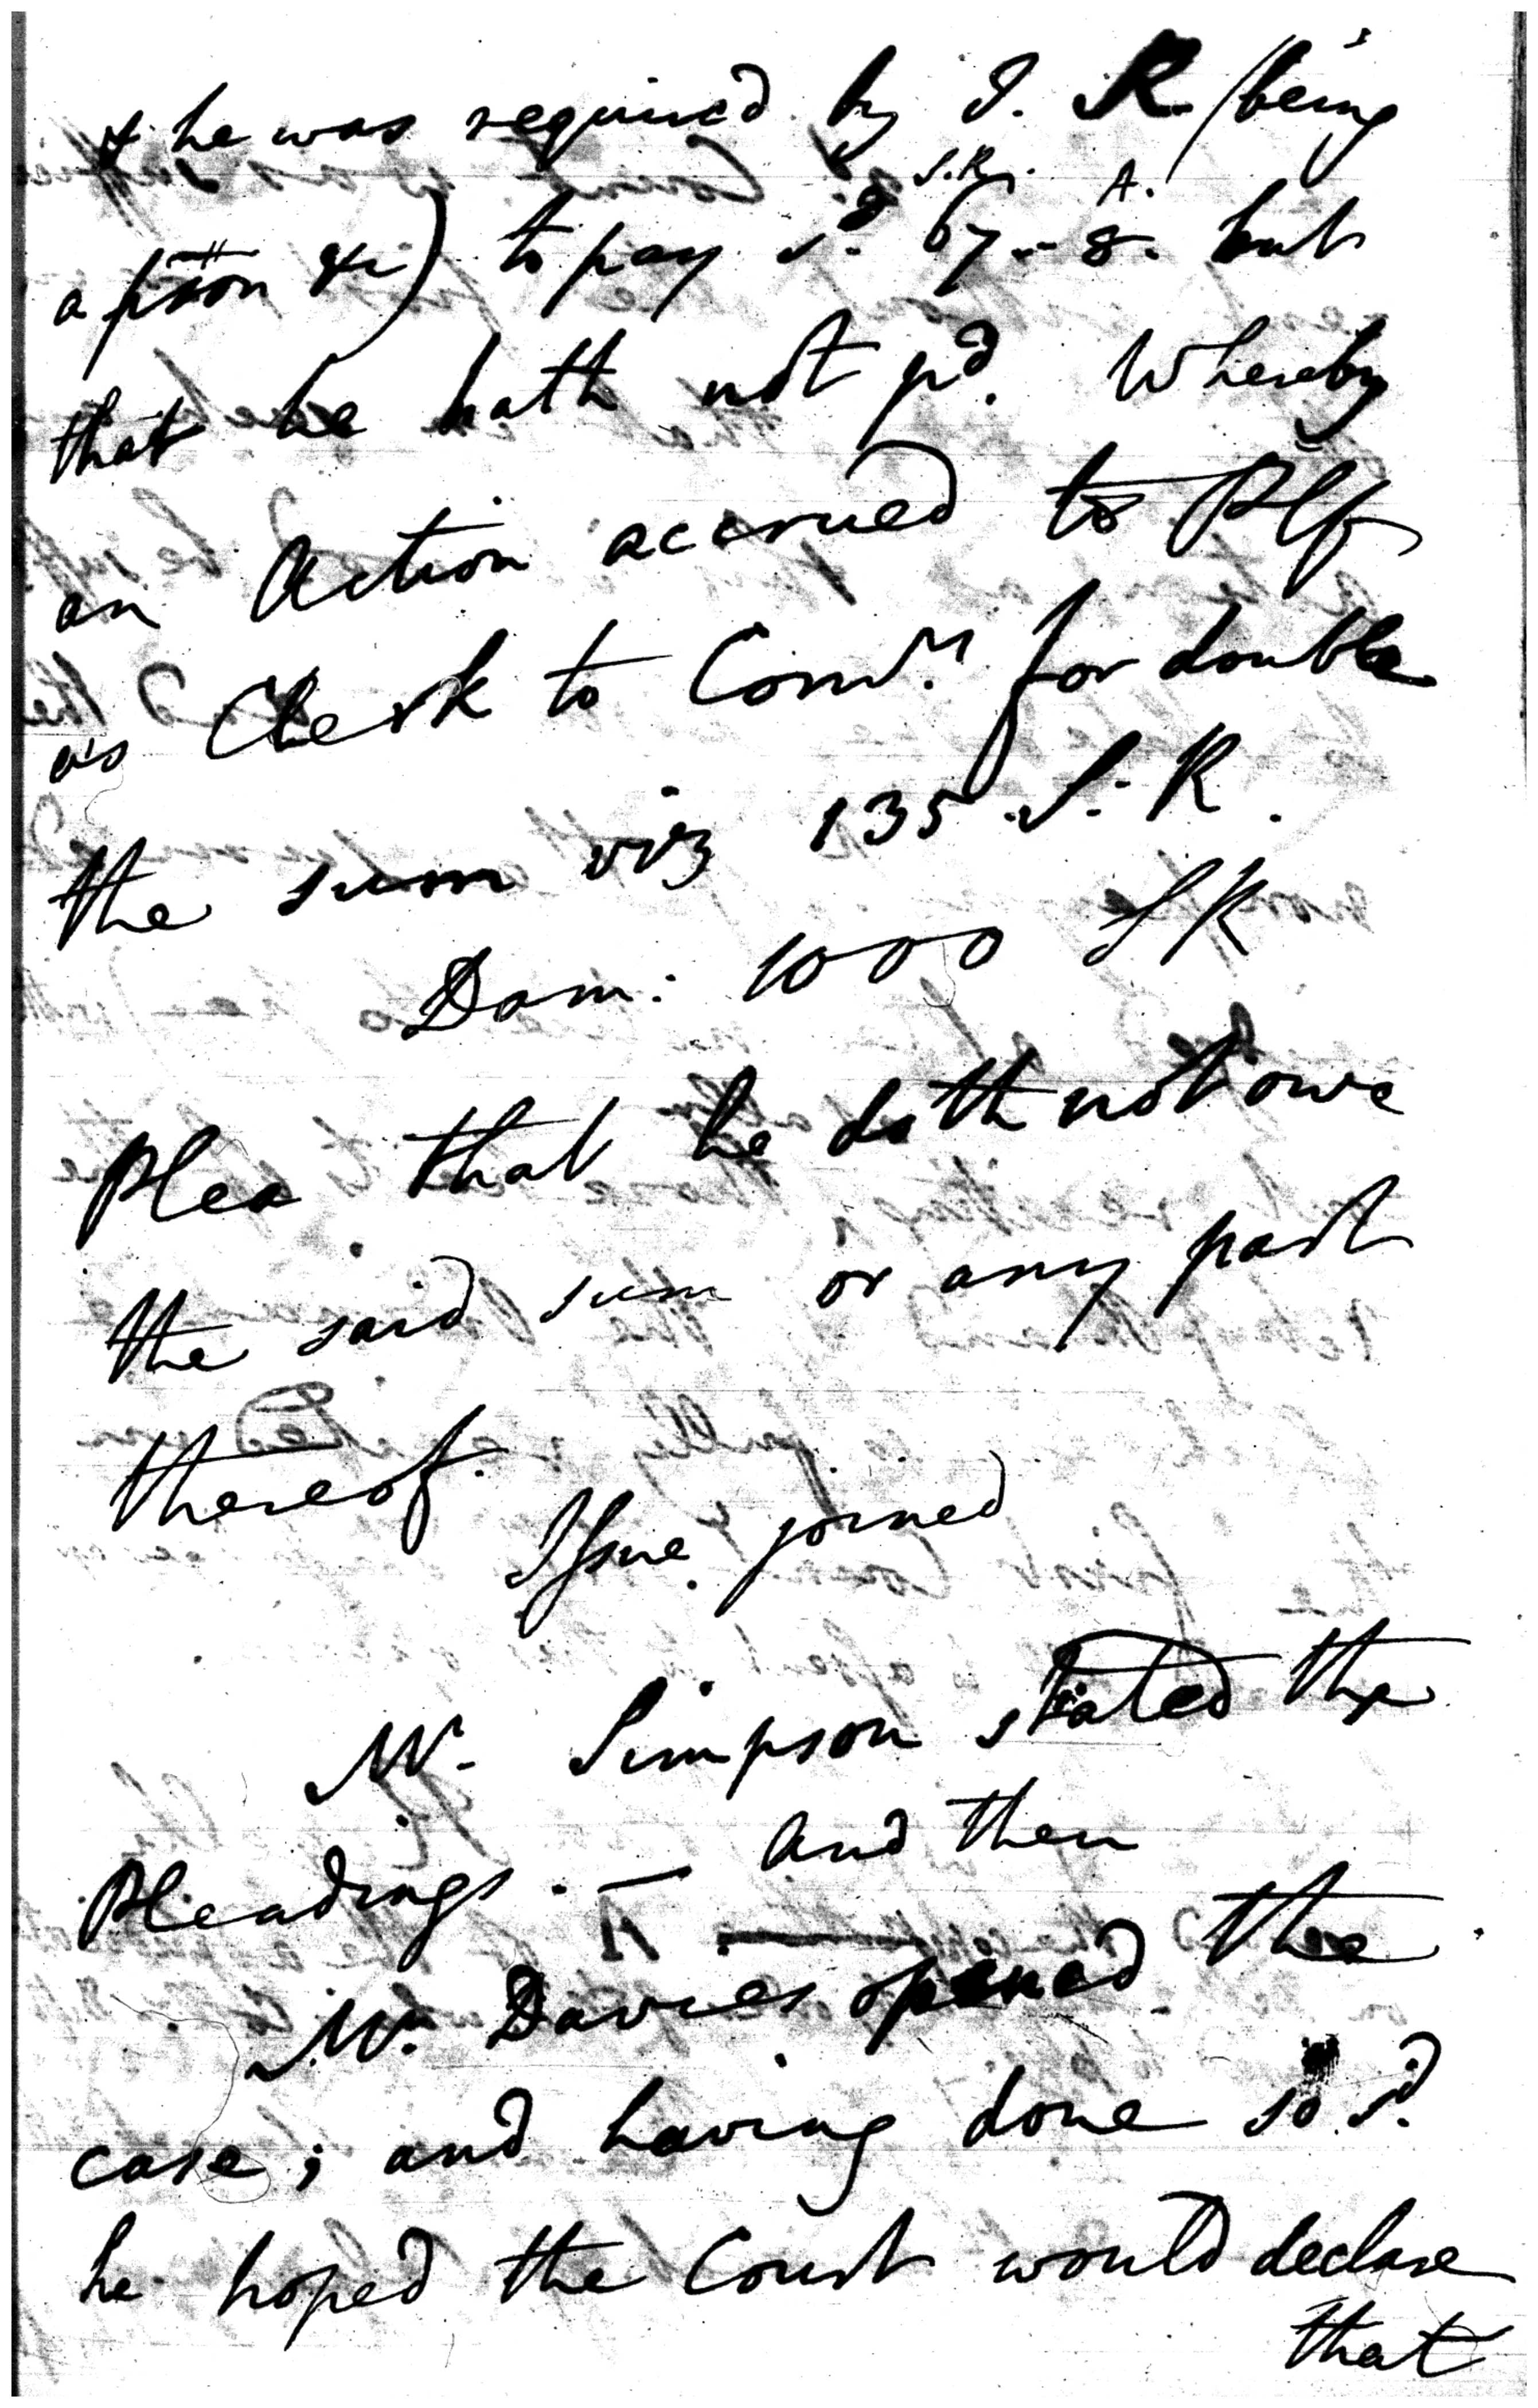 & he was required by I. R. (being
a pson &c) to pay sd. S.R. 67 - A. 8. but
that he hath not pd. Whereby
an Action accrued to Plf
as Clerk to Comrs. for double
the sum viz 135 S. R.
Dam: 1000 S R
Plea that he doth not owe
the said sum or any part
thereof.
Issue joined
Mr. Simpson stated the
Pleadings. — and then
Mr. Davies opened the
case; and having done so sd.
he hoped the Court would declare
that